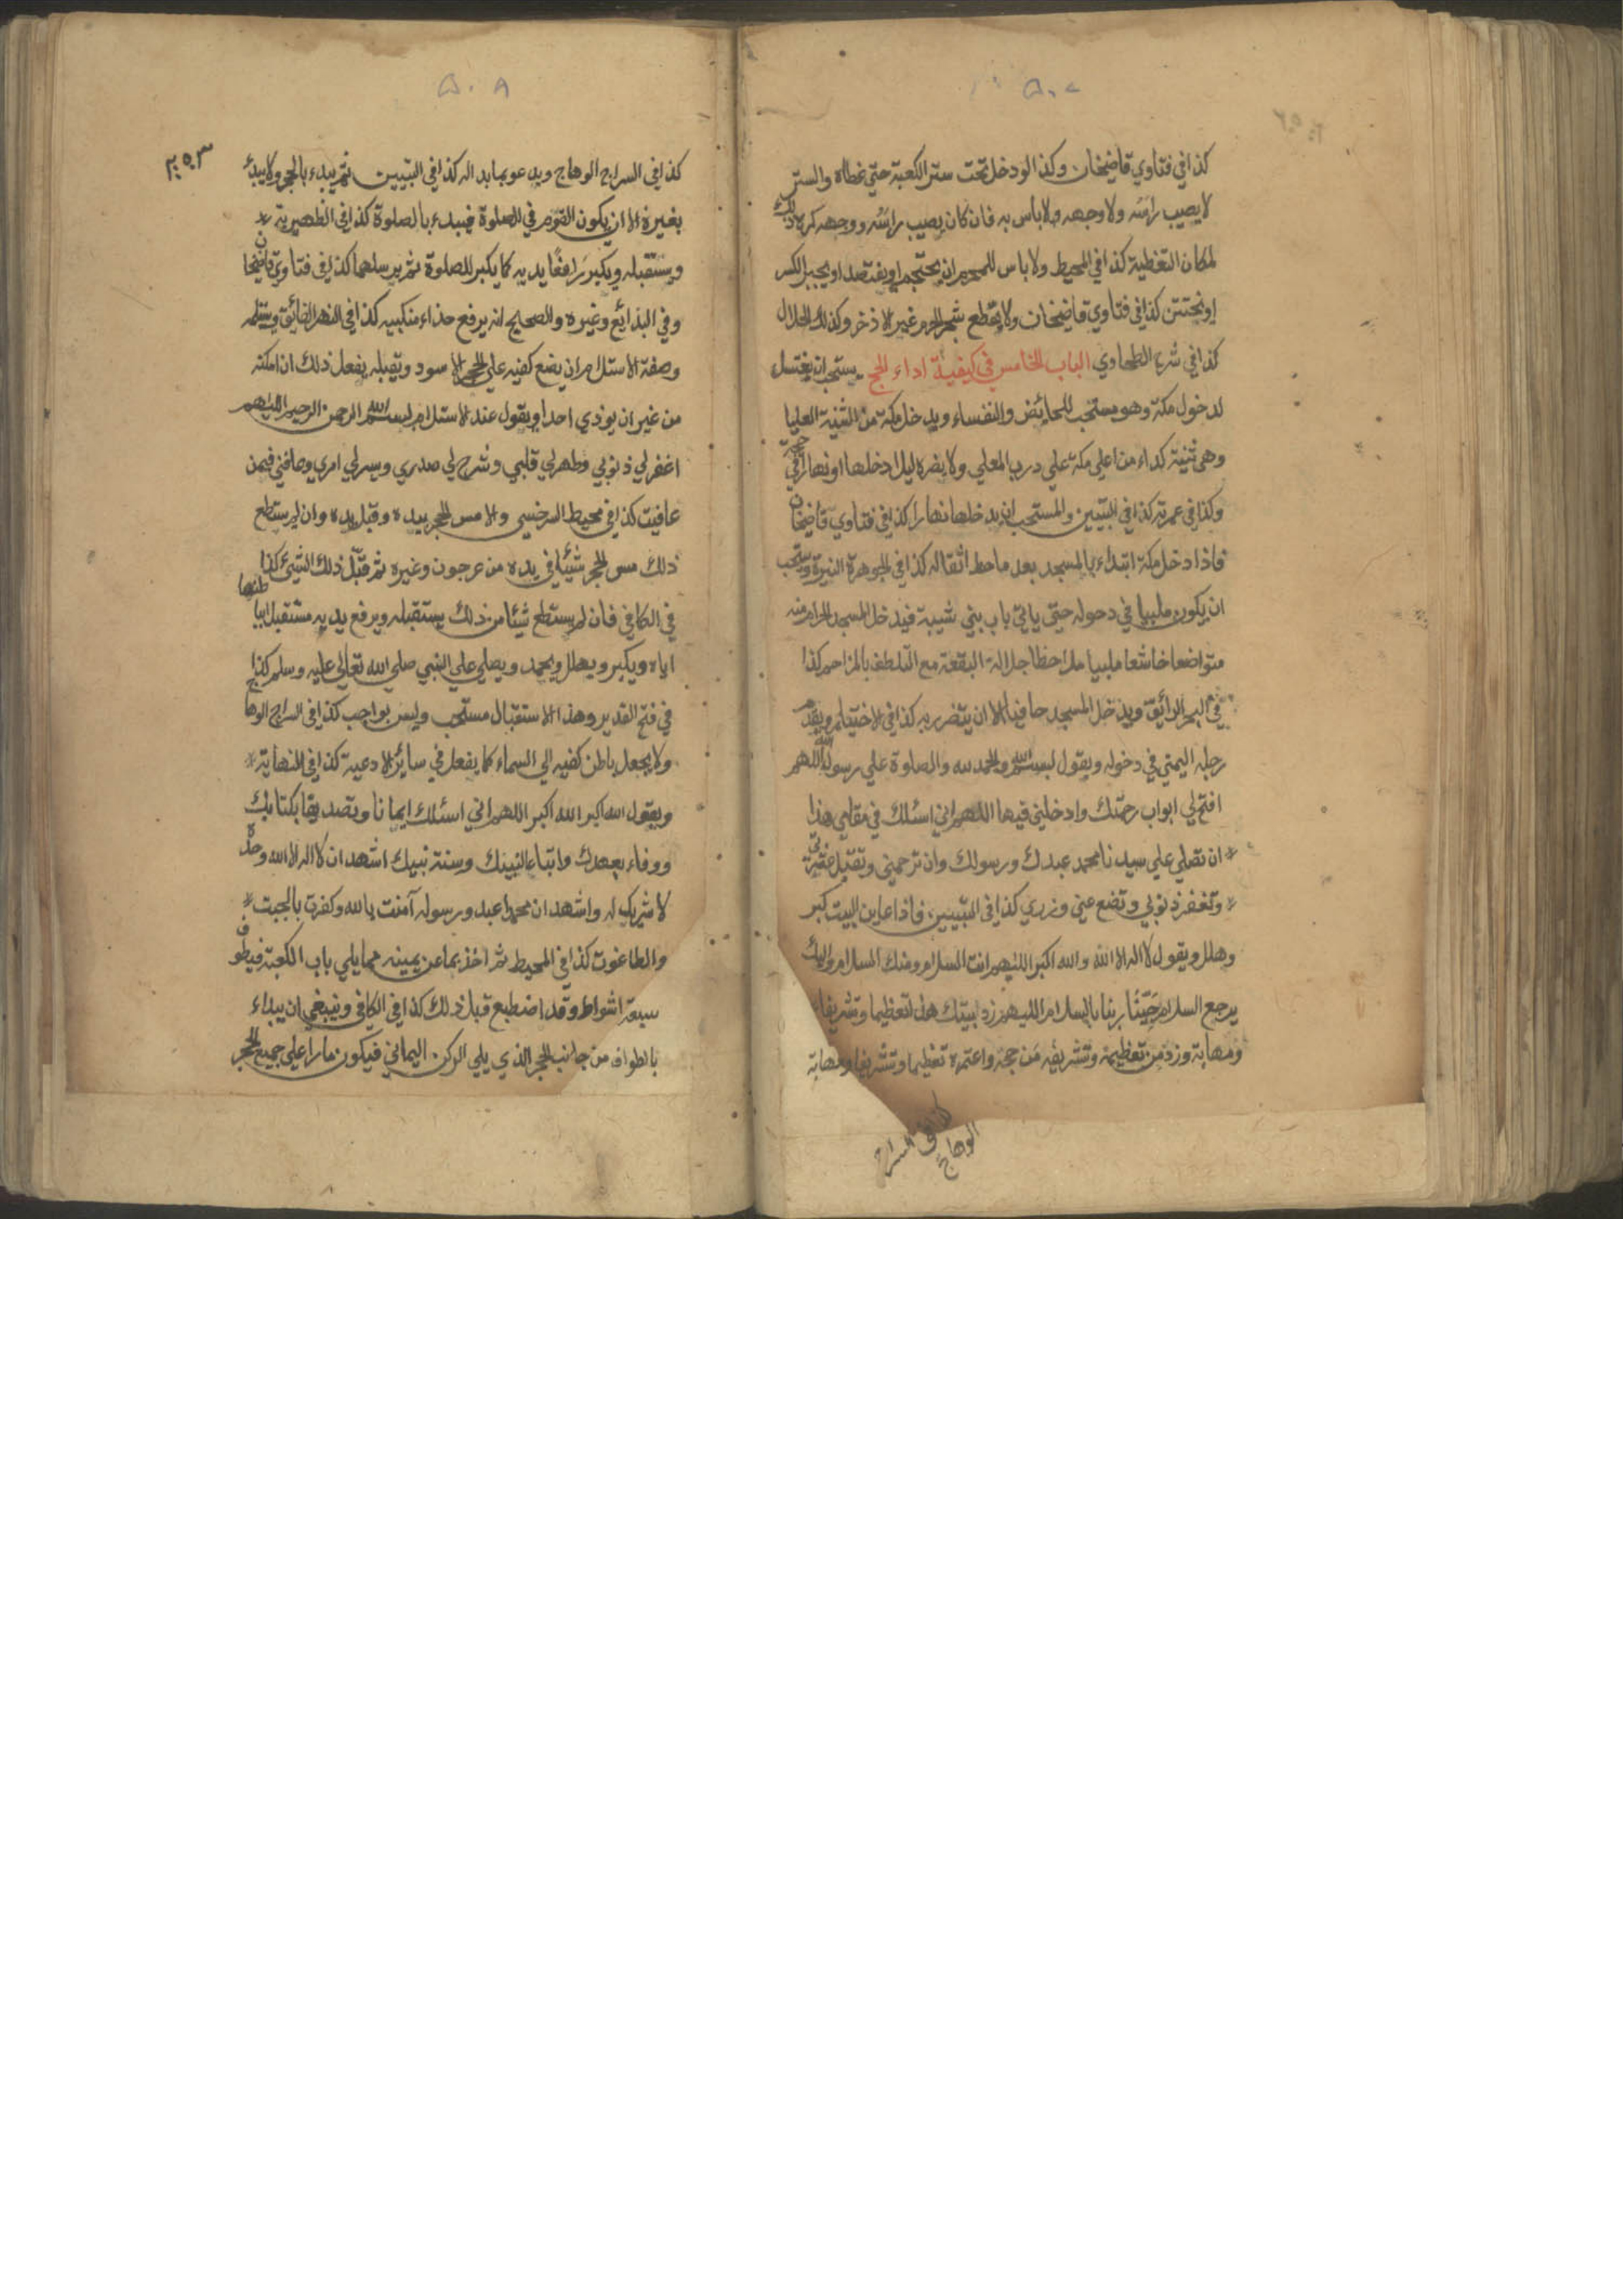 ٥٠٧
كذا في فتاوي قاضيخان وكذا لو دخل تحت ستر الكعبة حتي غطاه والستر
لا يصيب راسه ولا وجهه ولا باس به فان كان يصيب راسه ووجهه كره ذلك
لمكان التغطية كذا في المحيط ولا باس للمحرم ان يحتجم او يفتصد او يجبر الكسر
او يختتن كذا في فتاوي قاضيخان ولا يقطع شجر الحرم غير الاذخر وكذلك الحلال
كذا في شرح الطحاوي الباب الخامس في كيفية اداء الحج يستحب ان يغتسل
لدخول مكة وهو مستحب للحائض والنفساء ويدخل مكة من الثنية العليا
وهي ثنية كداء من اعلي مكة علي درب المعلي ولا يضره ليلا دخلها او نهارا في حجته
وكذا في عمرته كذا في التبيين والمستحب ان يدخلها نهارا كذا في فتاوي قاضيخان
فاذا دخل مكة ابتداء بالمسجد بعد ما حط اثقاله كذا في الجوهرة النيرة ويستحب
ان يكون ملبيا في دخوله حتي ياتي باب بني شيبة فيدخل المسجد الحرام منه
متواضعا خاشعا ملبيا ملاحظا جلالة البقعة مع التلطف بالمزاحم كذا
في البحر الرائق ويدخل المسجد حافيا الا ان يتضرر به كذا في الاختيار ويقدم
رجله اليمني في دخوله ويقول بسم الله والحمد لله والصلوة علي رسول الله اللهم
افتح لي ابواب رحمتك وادخلني فيها اللهم اني اسئلك في مقامي هذا
ان تصلي علي سيدنا محمد عبدك ورسولك وان ترحمني وتقبل عثرتي
وتغفر ذنوبي وتضع عني وزري كذا في التبيين فاذا عاين البيت كبر
وهلل ويقول لا اله الا الله والله اكبر اللهم انت السلام ومنك السلام واليك
يرجع السلام حَيِّنَا ربنا بالسلام اللهم زد بيتك هذا تعظيما وتشريفا
ومهابة وزد من تعظيمه وتشريفه من حجه واعتمره تعظيما وتشريفا ومهابة
كذا في السراج
الوهاج
٥٠٨
٢٥٣
كذا في السراج الوهاج ويدعو بما بدا له كذا في التبيين ثم يبدء بالحجر ولا يبدء
بغيره الا ان يكون القوم في الصلوة فيبدء بالصلوة كذا في الظهيرية
ويستقبله ويكبر رافعًا يديه كما يكبر للصلوة ثم يرسلهما كذا في فتاوي قاضيخان
وفي البدائع وغيره والصحيح انه يرفع حذاء منكبيه كذا في النهر الفائق ويستلمه
وصفة الاستلام ان يضع كفيه علي الحجر الاسود ويقبله يفعل ذلك ان امكنه
من غير ان يوذي احدا ويقول عند الاستلام بسم الله الرحمن الرحيم اللهم
اغفر لي ذنوبي وطهر لي قلبي وشرح لي صدري ويسر لي امري وعافني فيمن
عافيت كذا في محيط السرخسي والا مس الحجر بيده وقبل يده وان لم يستطع
ذلك مس الحجر شيئا في يده من عرجون وغيره ثم قبّل ذلك الشيئ كذا
في الكافي فان لم يستطع شيئا من ذلك يستقبله ويرفع يديه مستقبلا بباطنهما
اياه ويكبر ويهلل ويحمد ويصلي علي النبي صلي الله تعالي عليه وسلم كذا
في فتح القدير وهذا الاستقبال مستحب وليس بواجب كذا في السراج الوهاج
ولا يجعل باطن كفيه الي السماء كما يفعل في سائر الادعية كذا في النهاية
ويقول الله اكبر الله اكبر اللهم اني اسئلك ايمانا وتصديقا بكتابك
ووفاء بعهدك واتباعا لنبيك وسنة نبيك اشهد ان لا اله الا الله وحده
لا شريك له واشهد ان محمدا عبده ورسوله آمنت بالله وكفرت بالجبت
والطاغوت كذا في المحيط ثم اخذ بما عن يمينه مما يلي باب الكعبة فيطوف
سبعة اشواط وقد اضطبع قبل ذلك كذا في الكافي وينبغي ان يبداء
بالطواف من جانب الحجر الذي يلي الركن اليماني فيكون مارا علي جميع الحجر